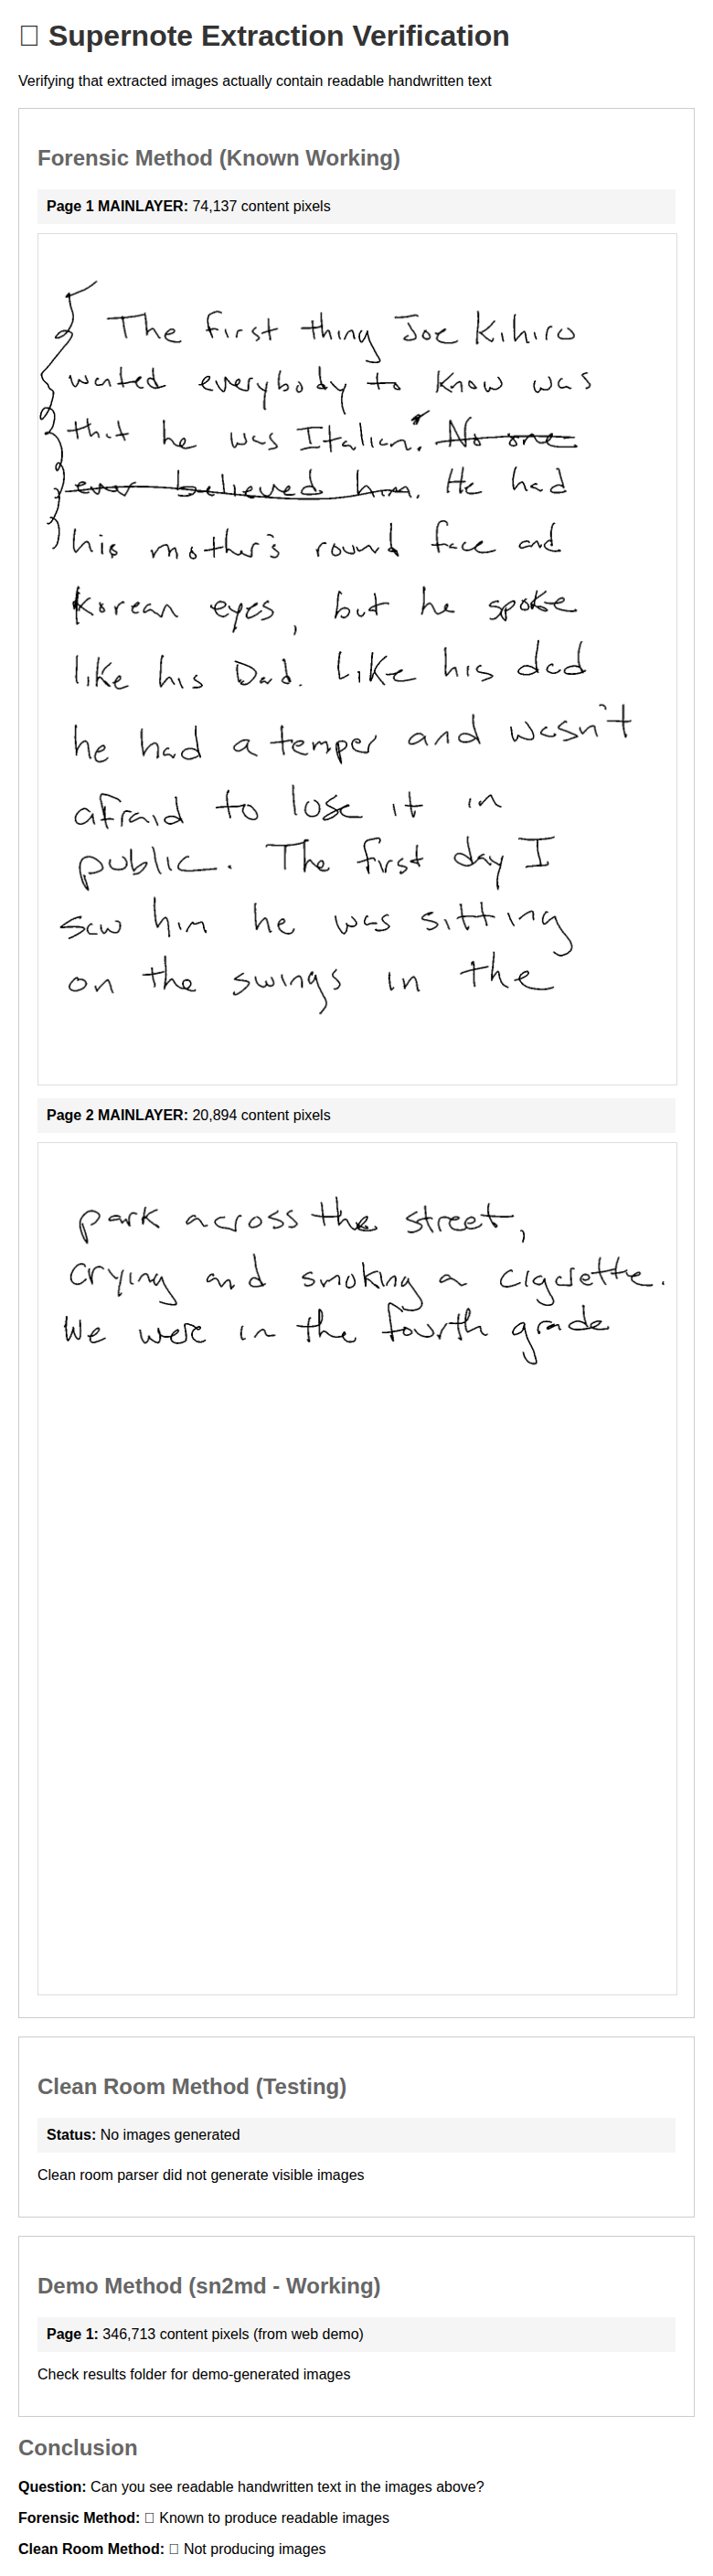 Supernote Extraction Verification
Verifying that extracted images actually contain readable handwritten text
Forensic Method (Known Working)
Page 1 MAINLAYER: 74,137 content pixels
The first thing Joe Kihiro
wanted everybody to know was
that he was Italian. No one
ever believed him. He had
his mother's round face and
Korean eyes, but he spoke
like his Dad. Like his dad
he had a temper and wasn't
afraid to lose it in
public. The first day I
saw him he was sitting
on the swings in the
Page 2 MAINLAYER: 20,894 content pixels
park across the street,
crying and smoking a cigarette.
We were in the fourth grade
Clean Room Method (Testing)
Status: No images generated
Clean room parser did not generate visible images
Demo Method (sn2md - Working)
Page 1: 346,713 content pixels (from web demo)
Check results folder for demo-generated images
Conclusion
Question: Can you see readable handwritten text in the images above?
Forensic Method: Known to produce readable images
Clean Room Method: Not producing images